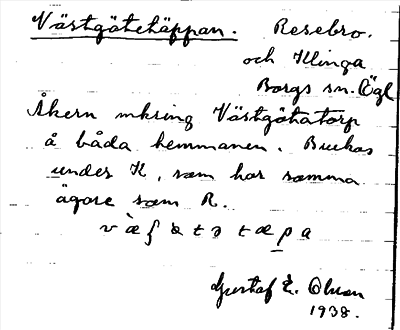 Västgötetäppan. Resebro.
och Klinga
Borgs sn. Ögl
Åkern mkring Västgötatorp
å båda hemmanen. Buckas
under K, som har samma
ägare som R.
Gustaf E. Olsson
1938.